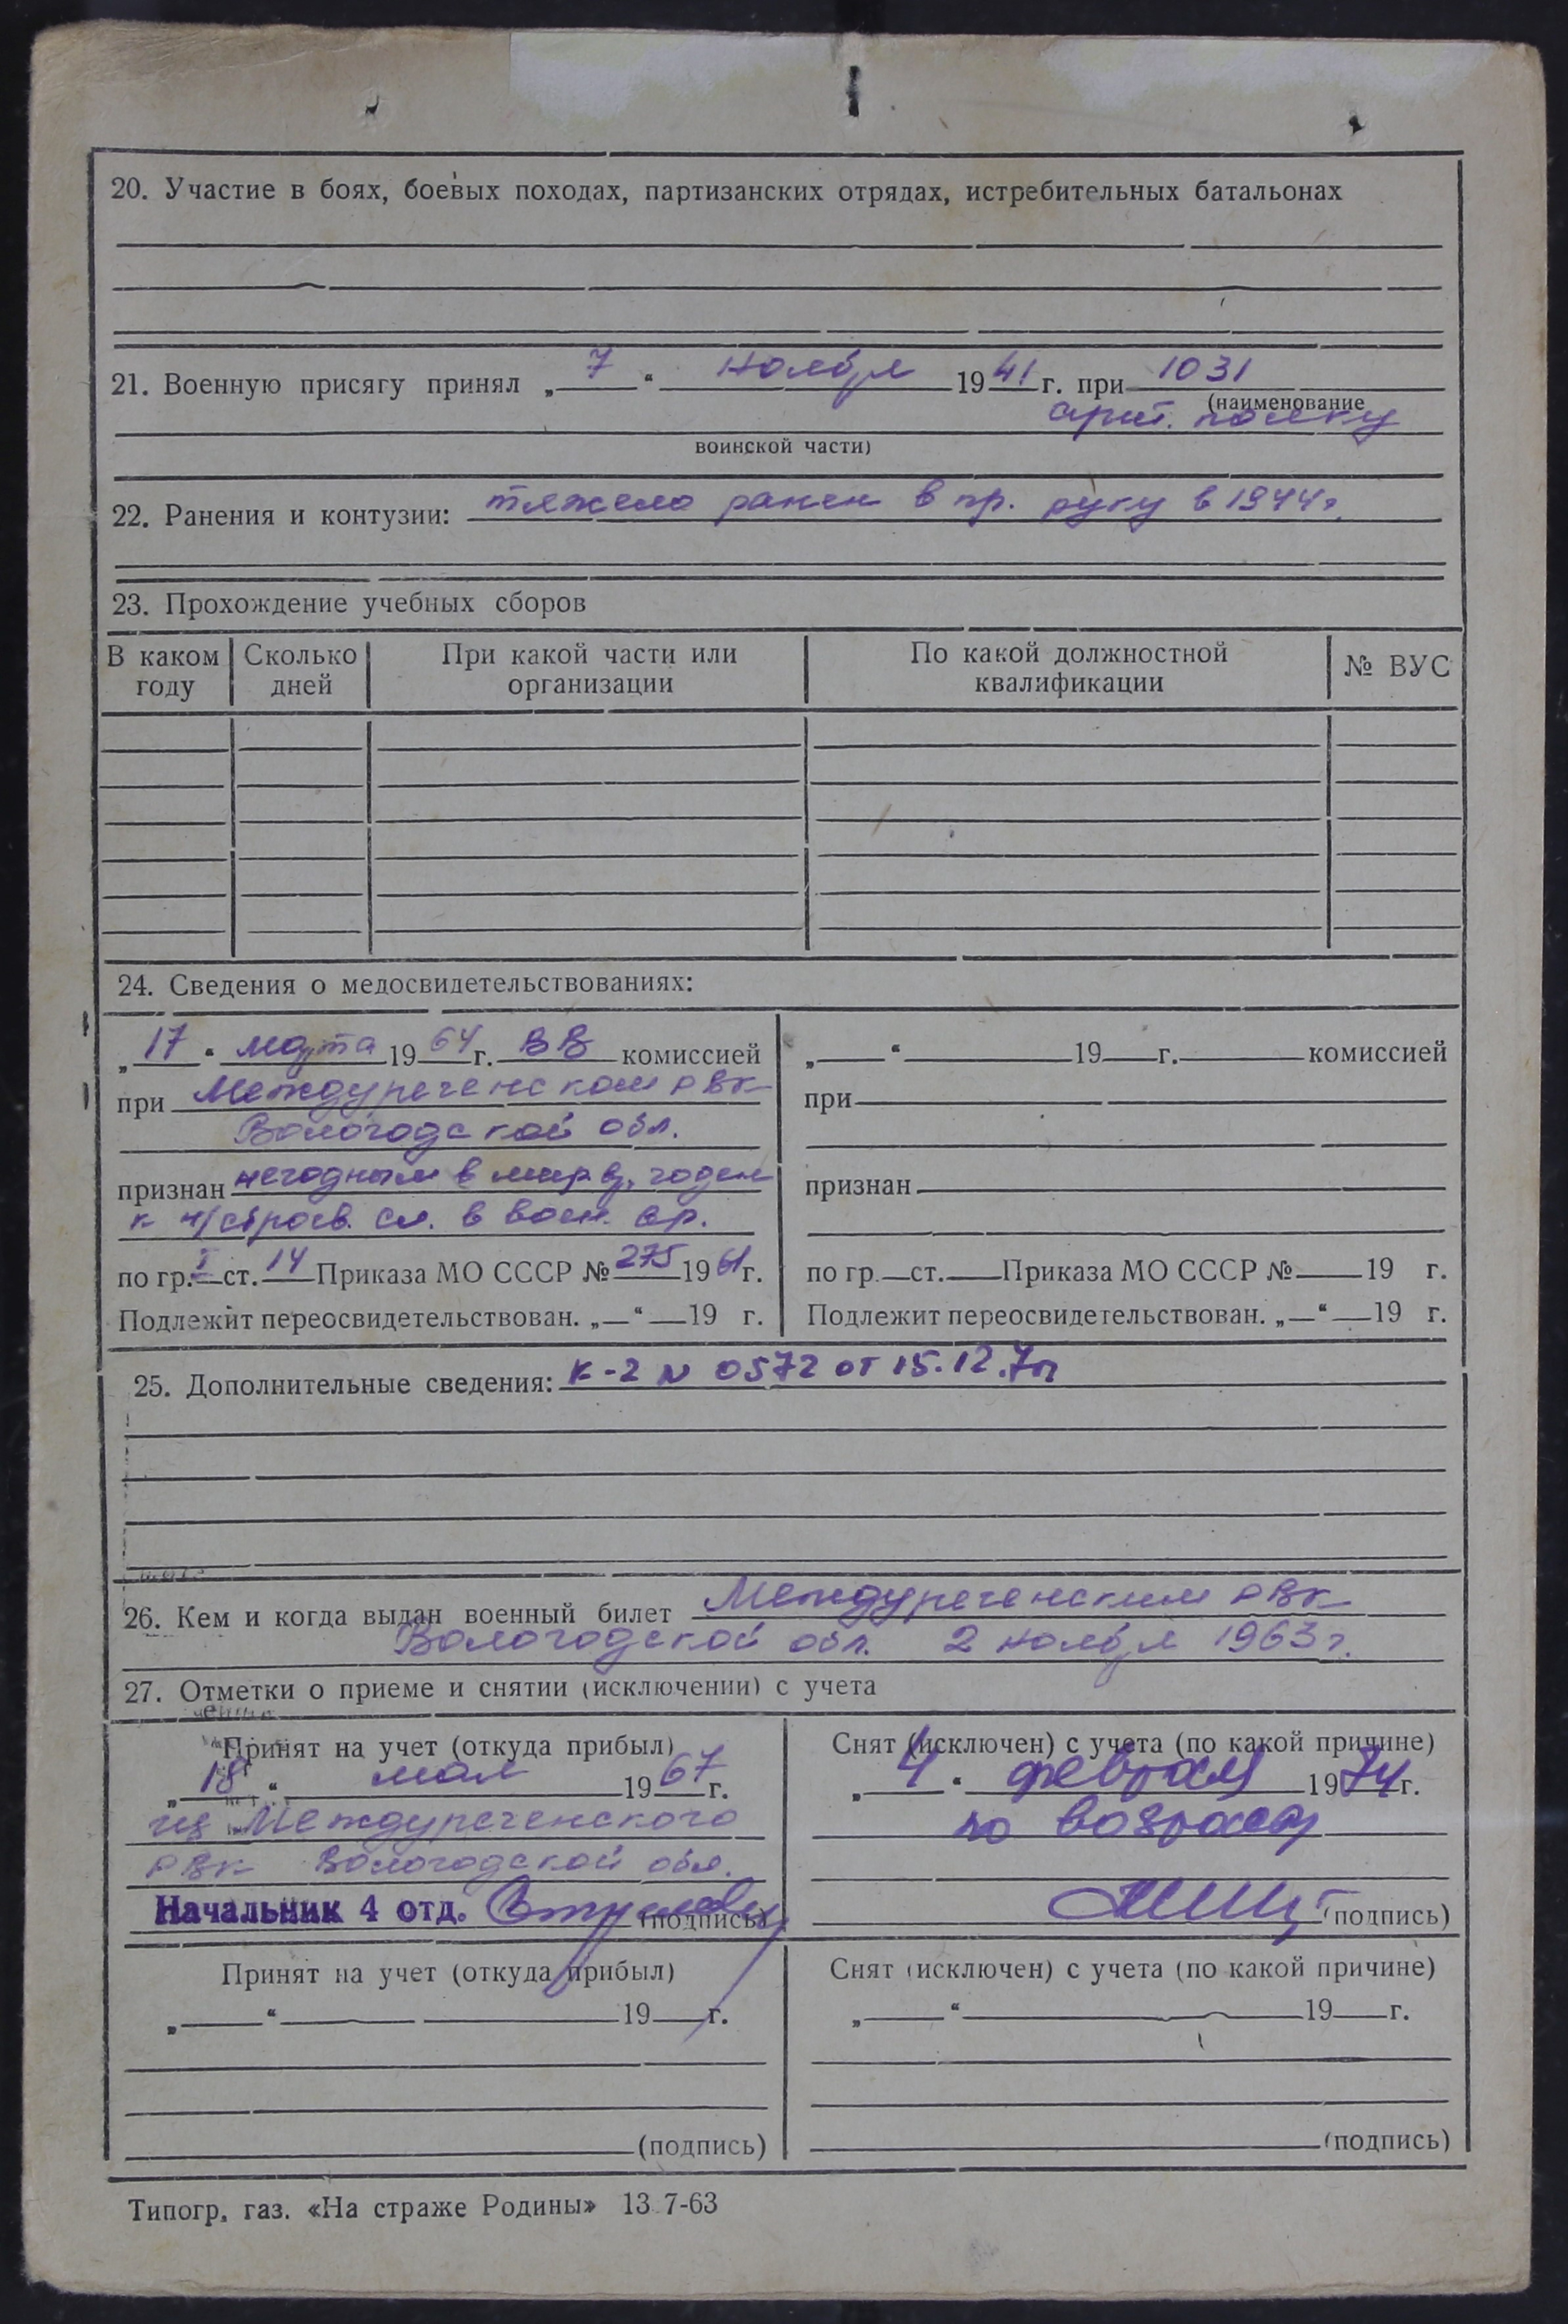 20. Участие в боях, боевых походах, партизанских отрядах, истребительных батальонах
21. Военную присягу принял „ 7 “ ноября 1941 г. при 1031
(наименование
арт. полку
воинской части)
22. Ранения и контузии: тяжело ранен в пр. руку в 1944 г.
23. Прохождение учебных сборов
В каком году | Сколько дней | При какой части или организации | По какой должностной квалификации | № ВУС
24. Сведения о медосвидетельствованиях:
„ 17 “ марта 1964 г. ВВ комиссией
при Междуреченском РВК
Вологодской обл.
признан негодным в мир. вр. годен
к н/строев. сл. в воен. вр.
по гр. I ст. 14 Приказа МО СССР № 275 1961 г.
Подлежит переосвидетельствован. „ “ 19 г.
„ “ 19 г. комиссией
при
признан
по гр. ст. Приказа МО СССР № 19 г.
Подлежит переосвидетельствован. „ “ 19 г.
25. Дополнительные сведения: К-2 N 0572 от 15.12.
26. Кем и когда выдан военный билет Междуреченским РВК
Вологодской обл. 2 ноября 1963 г.
27. Отметки о приеме и снятии (исключении) с учета
Принят на учет (откуда прибыл)
„ 18 “ мая 1967 г.
из Междуреченского
РВК Вологодской обл.
Начальник 4 отд. (подпись)
Снят (исключен) с учета (по какой причине)
„ 4 “ февраля 1974 г.
по возрасту
(подпись)
Принят на учет (откуда прибыл)
„ “ 19 г.
(подпись)
Снят (исключен) с учета (по какой причине)
„ “ 19 г.
(подпись)
Типогр. газ. «На страже Родины» 13 7-63